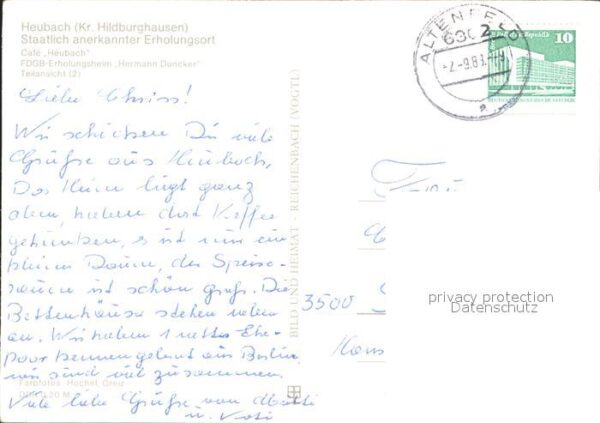 Heubach (Kr. Hildburghausen)
Staatlich anerkannter Erholungsort
Café „Heubach"
FDGB-Erholungsheim „Hermann Duncker"
Teilansicht (2)
Liebe Chriss!
Wir schicken Dir viele
Grüße aus Heubach.
Das Heim liegt ganz
oben, haben dort Kaffee
getrunken, es ist nur ein
kleiner Raum, der Speise-
raum ist schön groß. Die
Bettenhäuser stehen neben
an. Wir haben 1 nettes Ehe-
paar kennengelernt aus Berlin,
wir sind viel zusammen.
Viele liebe Grüße von Mutti
u. Vati
Farbfotos: Höchel, Greiz
BILD UND HEIMAT - REICHENBACH (VOGTL)
ALTENFELD
6302
-2.-9.81
a
10
Frau
3500
Hans
privacy protection
Datenschutz